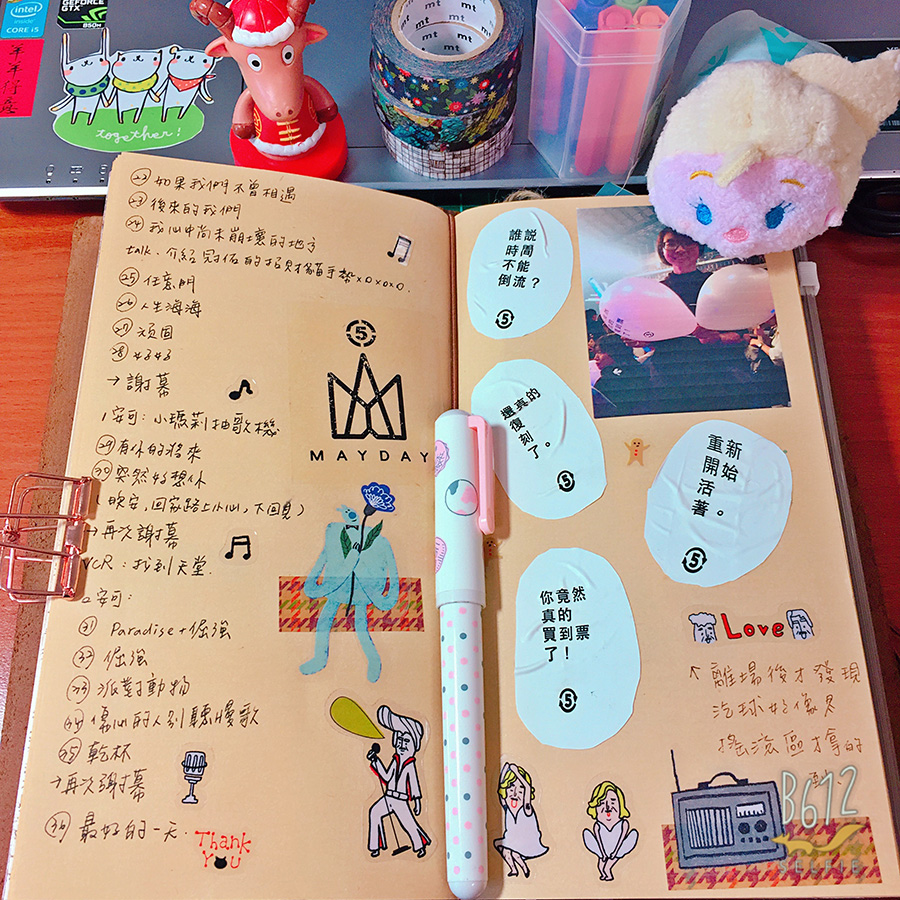 intel
inside
CORE i5
GEFORCE
GTX
850M
羊年得意
together!
mt mt mt
㉒ 如果我們不曾相遇
㉓ 後來的我們
㉔ 我心中尚未崩壞的地方
talk、介紹冠佑的招財貓手勢
㉕ 任意門
㉖ 人生海海
㉗ 頑固
㉘ 好好
→ 謝幕
1安可：小瑪莉抽歌機
㉙ 有你的將來
㉚ 突然好想你
晚安，回家路上小心，下回見）
→ 再次謝幕
VCR：找到天堂.
2安可：
㉛ Paradise+倔強
㉜ 倔強
㉝ 派對動物
㉞ 傷心的人別聽慢歌
㉟ 乾杯
→ 再次謝幕
㊱ 最好的一天.
Thank
You
5
MAYDAY
誰說
時間
不能
倒流？
5
還真的
復刻
了。
5
重新
開始
活
著。
5
你竟然
真的
買到票
了！
5
Love
↖離場後才發現
汽球好像是
搖滾區才拿的
B612
SELFIE